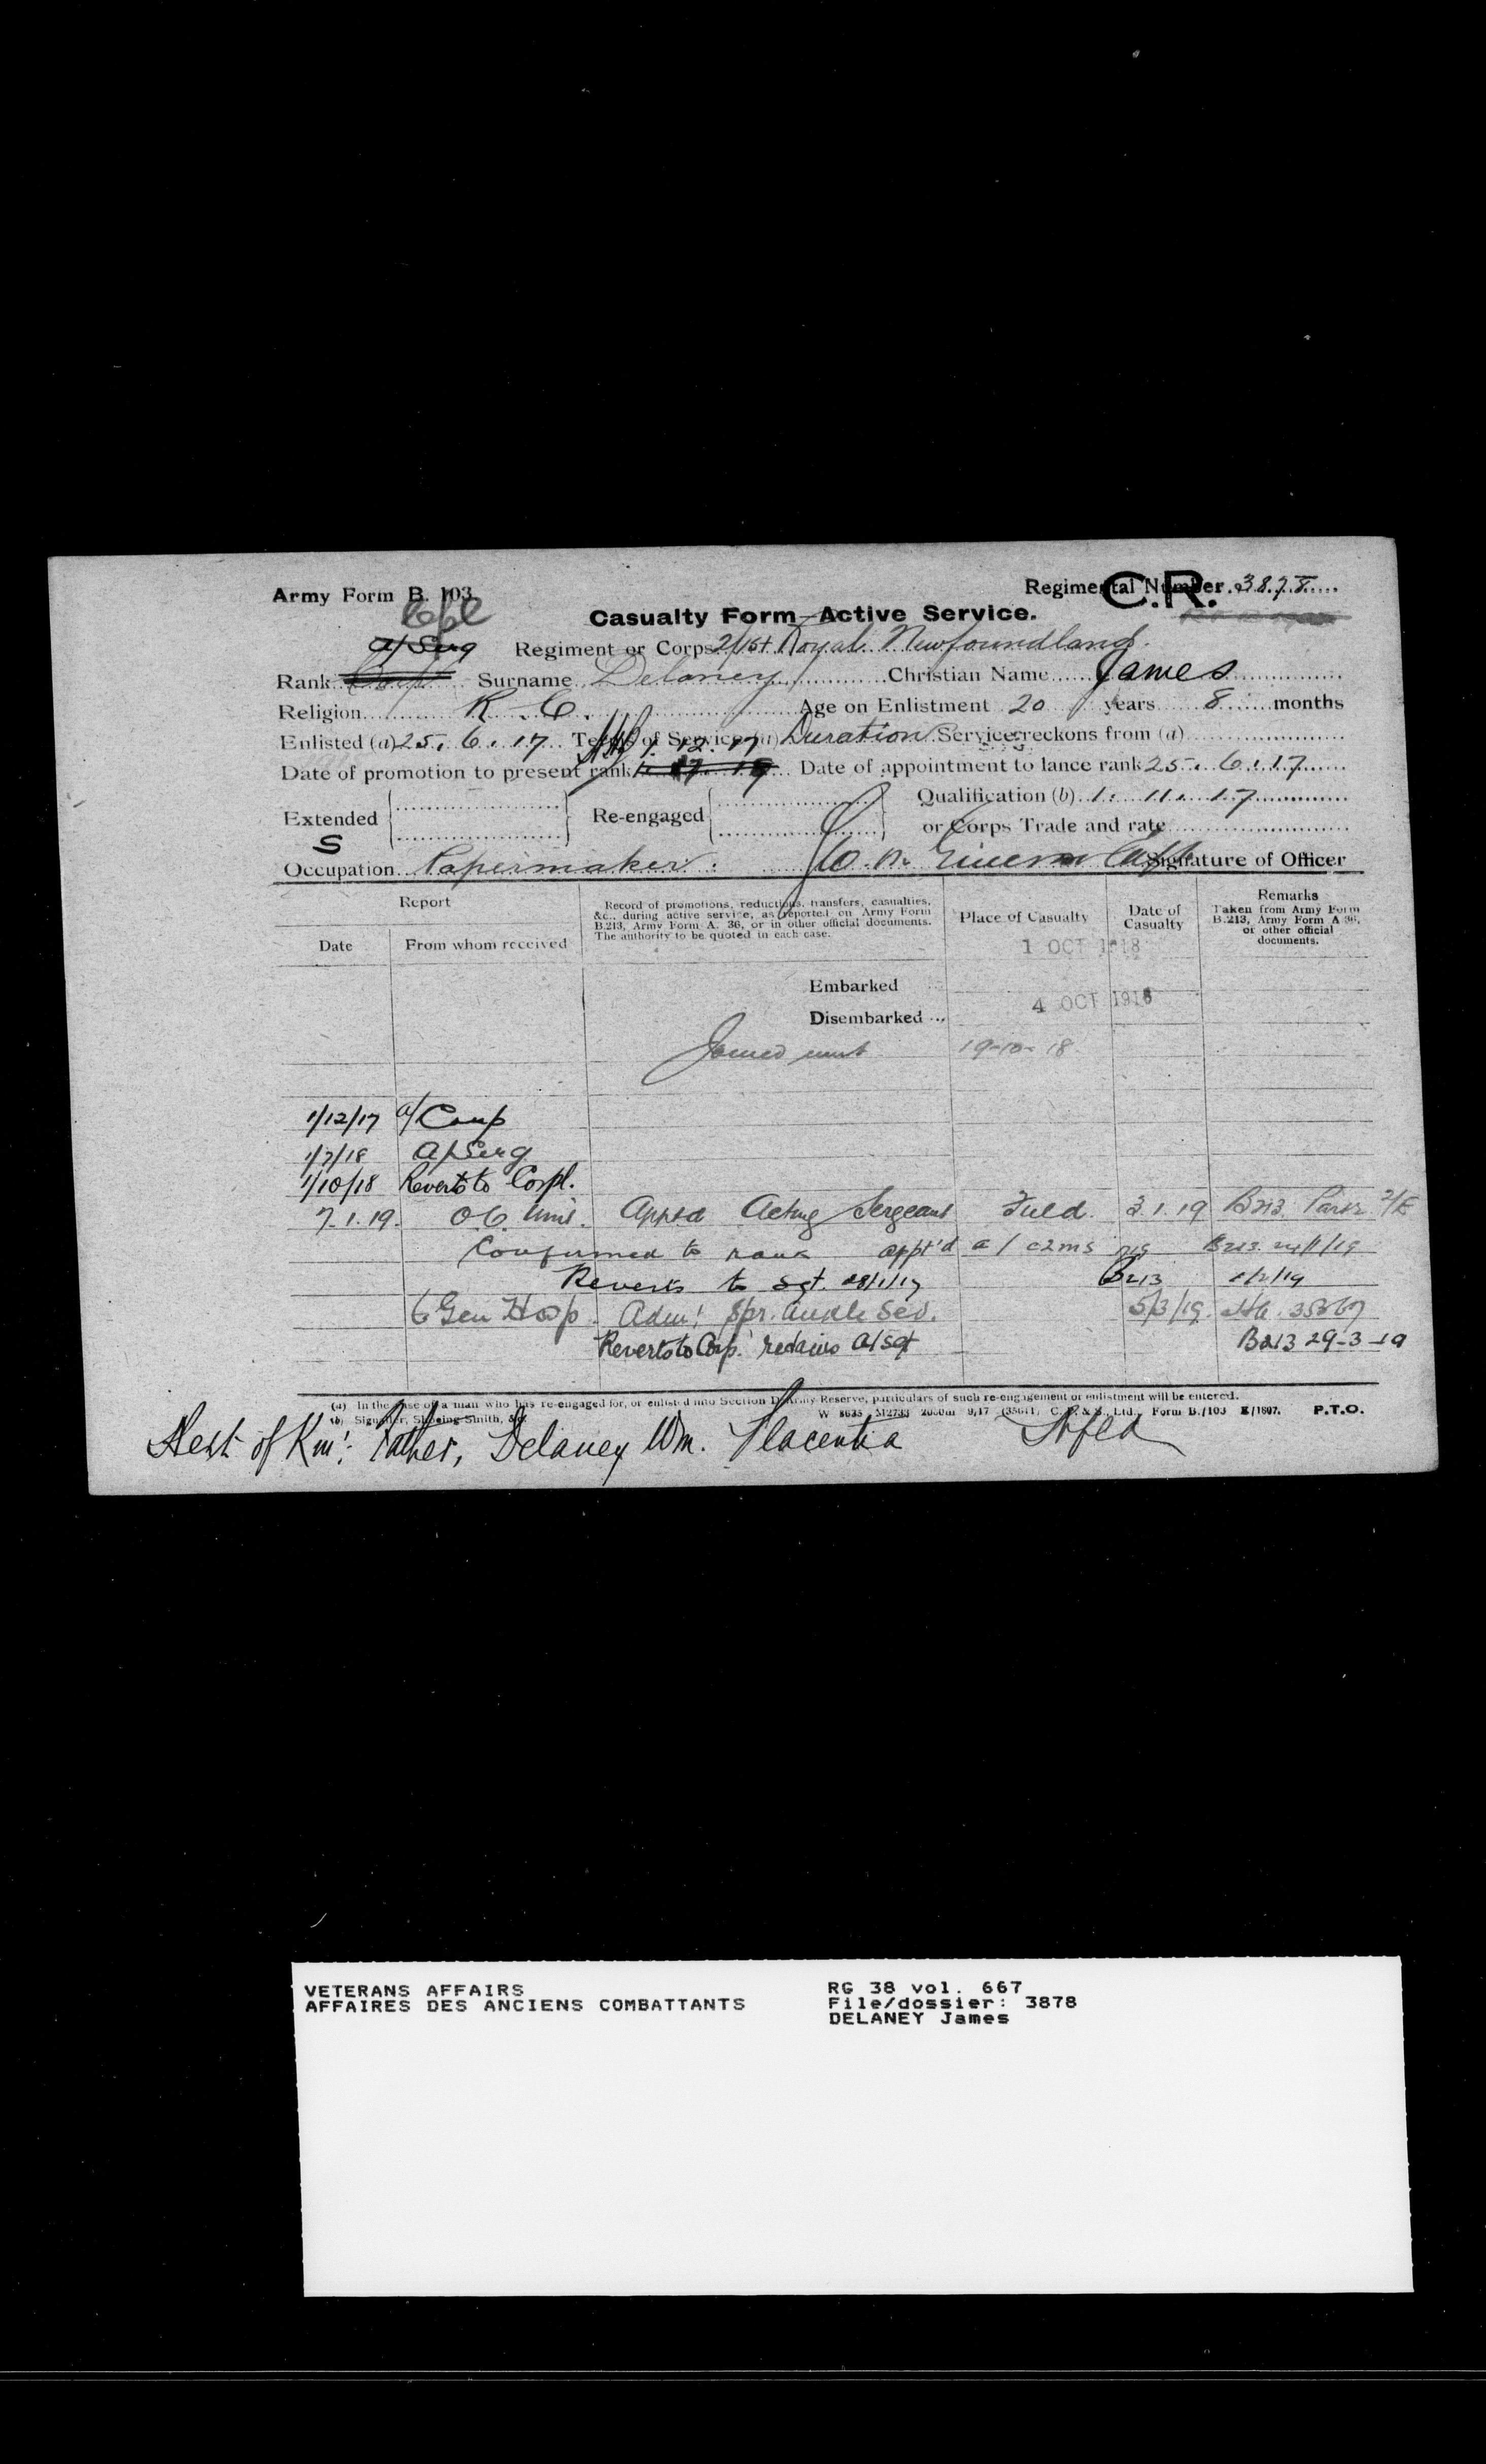 Army Form B. 103
Regimental Number 3878
C.R.
Cpl
Casualty Form—Active Service.
A/Serg
Regiment or Corps 2/1st Royal Newfoundland
Rank Corp Surname Delaney Christian Name James
Religion R.C. Age on Enlistment 20 years 8 months
Enlisted (a) 25.6.17 Terms of Service (a) Duration Service reckons from (a)
1.12.17
Date of promotion to present rank Date of appointment to lance rank 25.6.17
Extended Re-engaged Qualification (b) 1.11.17
or Corps Trade and rate
S
Occupation Papermaker Signature of Officer
Report
Date From whom received
Record of promotions, reductions, transfers, casualties, &c., during active service, as reported on Army Form B.213, Army Form A. 36, or in other official documents. The authority to be quoted in each case.
Place of Casualty
Date of Casualty
Remarks
Taken from Army Form B.213, Army Form A 36, or other official documents.
1 OCT 1918
Embarked
Disembarked ... 4 OCT 1918
Joined unit 19-10-18
1/12/17 a/Corp
1/7/18 A/Serg
1/10/18 Reverts to Corpl.
7.1.19. OC. Unit. Apptd Acting Sergeant Field. 3.1.19 B213
Confirmed to rank appt'd a/ C2MS B213
Reverts to Sgt. 28/1/19 B213
6 Gen Hosp. Adm! Spr. Ankle Sev. 5/3/19
Reverts to Corp. retains A/Sgt B213 29-3-19
(a) In the case of a man who has re-engaged for, or enlisted into Section D, Army Reserve, particulars of such re-engagement or enlistment will be entered.
(b) Signaller, Shoeing-Smith, &c.
Form B./103 P.T.O.
Next of Kin: Father, Delaney Wm. Placentia Nfld
VETERANS AFFAIRS
AFFAIRES DES ANCIENS COMBATTANTS
RG 38 vol. 667
File/dossier: 3878
DELANEY James